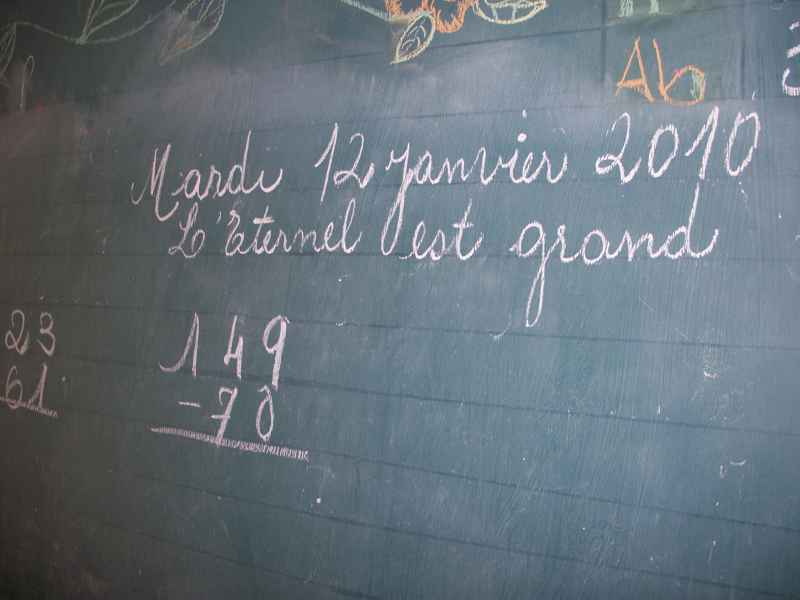 Ab
Mardi 12 janvier 2010
L'Eternel est grand
23
61
149
-70